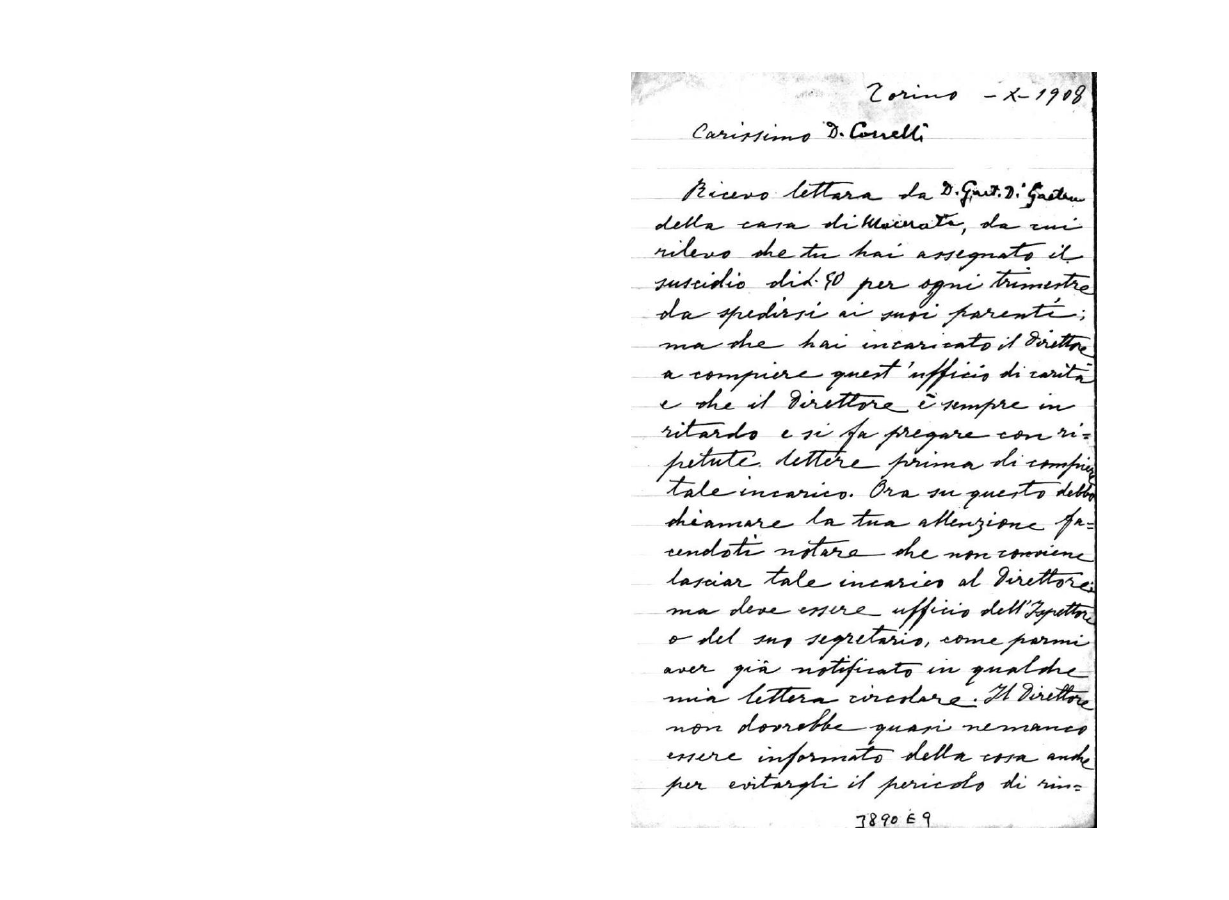 Torino - X - 1908
Carissimo D. Conelli
Ricevo lettara da D. Gaet. Di Gaetan
della casa di Macerata, da cui
rilevo che tu hai assegnato il
suscidio di L. 50 per ogni trimestre
da spedirsi ai suoi parenti;
ma che hai incaricato il Direttore
a compiere quest'ufficio di carità
e che il Direttore è sempre in
ritardo e si fa pregare con ri=
petute lettere prima di compiere
tale incarico. Ora su questo debbo
chiamare la tua attenzione fa=
cendoti notare che non conviene
lasciar tale incarico al Direttore;
ma deve essere ufficio dell'Ispettore
o del suo segretario, come parmi
aver già notificato in qualche
mia lettera circolare. Il Direttore
non dovrebbe quasi nemanco
essere informato della cosa anche
per evitargli il pericolo di rin=
3890 E 9